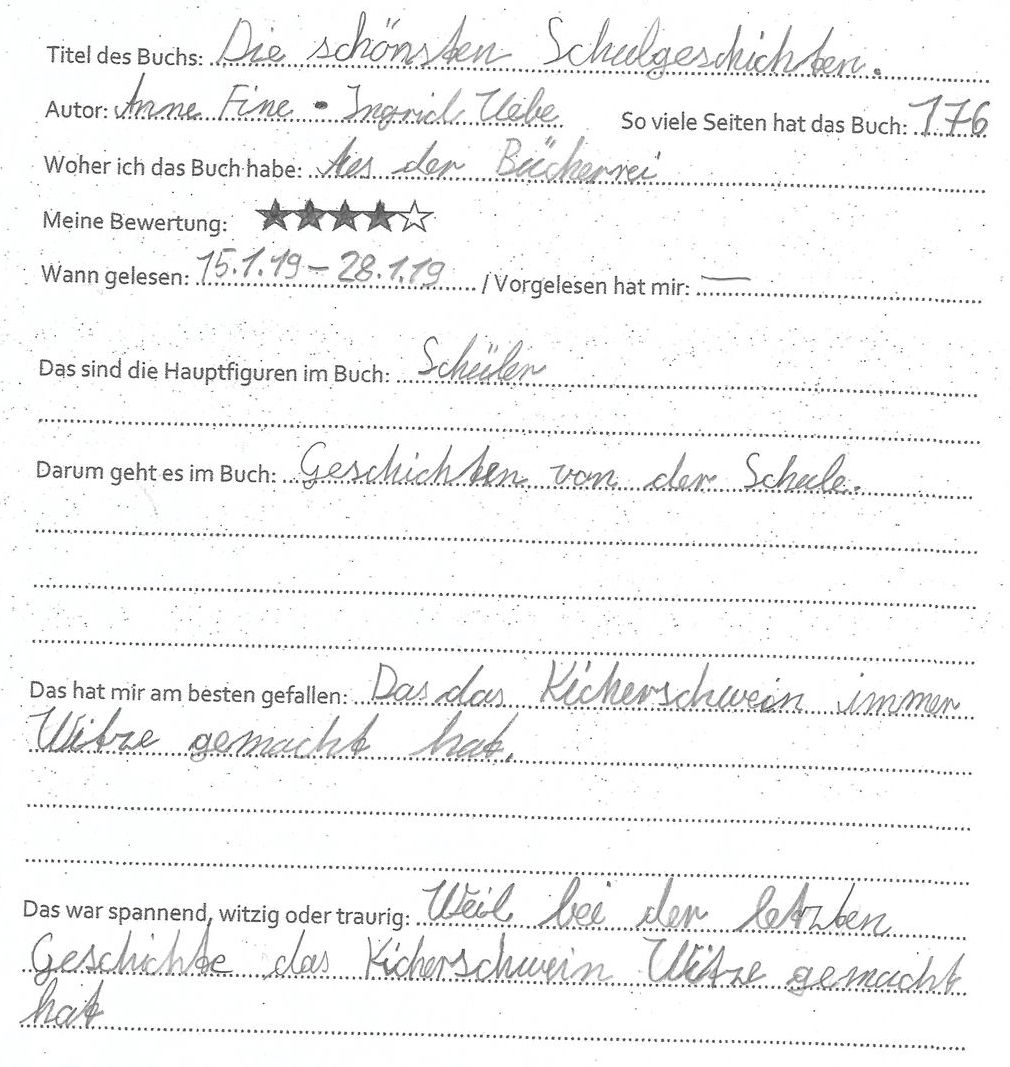 Titel des Buchs: Die schönsten Schulgeschichten.
Autor: Anne Fine • Ingrid Uebe So viele Seiten hat das Buch: 176
Woher ich das Buch habe: Aus der Bücherrei
Meine Bewertung: ★★★★☆
Wann gelesen: 15.1.19 – 28.1.19 / Vorgelesen hat mir: —
Das sind die Hauptfiguren im Buch: Schüler
Darum geht es im Buch: Geschichten von der Schule.
Das hat mir am besten gefallen: Das das Kicherschwein immer
Witze gemacht hat.
Das war spannend, witzig oder traurig: Weil bei der letzten
Geschichte das Kicherschwein Witze gemacht
hat